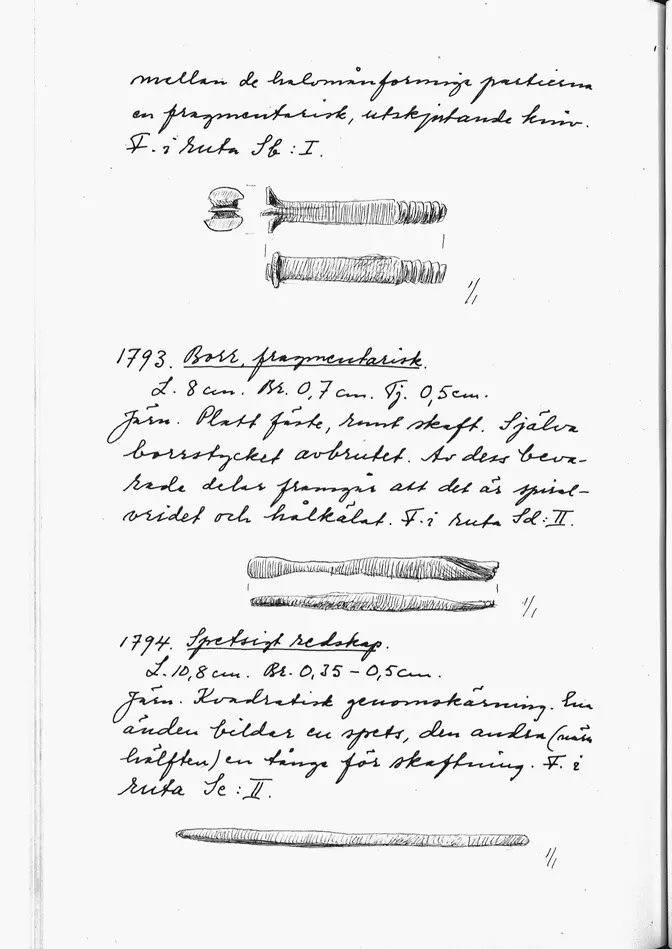 mellan de halvmånformiga partierna
en fragmentarisk, utskjutande kniv.
F. i ruta Sb : I.
1/1
1793. Borr, fragmentarisk.
L. 8 cm. Br. 0,7 cm. Tj. 0,5 cm.
Järn. Platt fäste, runt skaft. Själva
borrstycket avbrutet. Av dess beva-
rade delar framgår att det är spiral-
vridet och hålkälat. F. i ruta Sd : II.
1/1
1794. Spetsigt redskap.
L. 10,8 cm. Br. 0,35 – 0,5 cm.
Järn. Kvadratisk genomskärning. Ena
änden bildar en spets, den andra (nära
hälften) en tånge för skaftning. F. i
ruta Se : II.
1/1